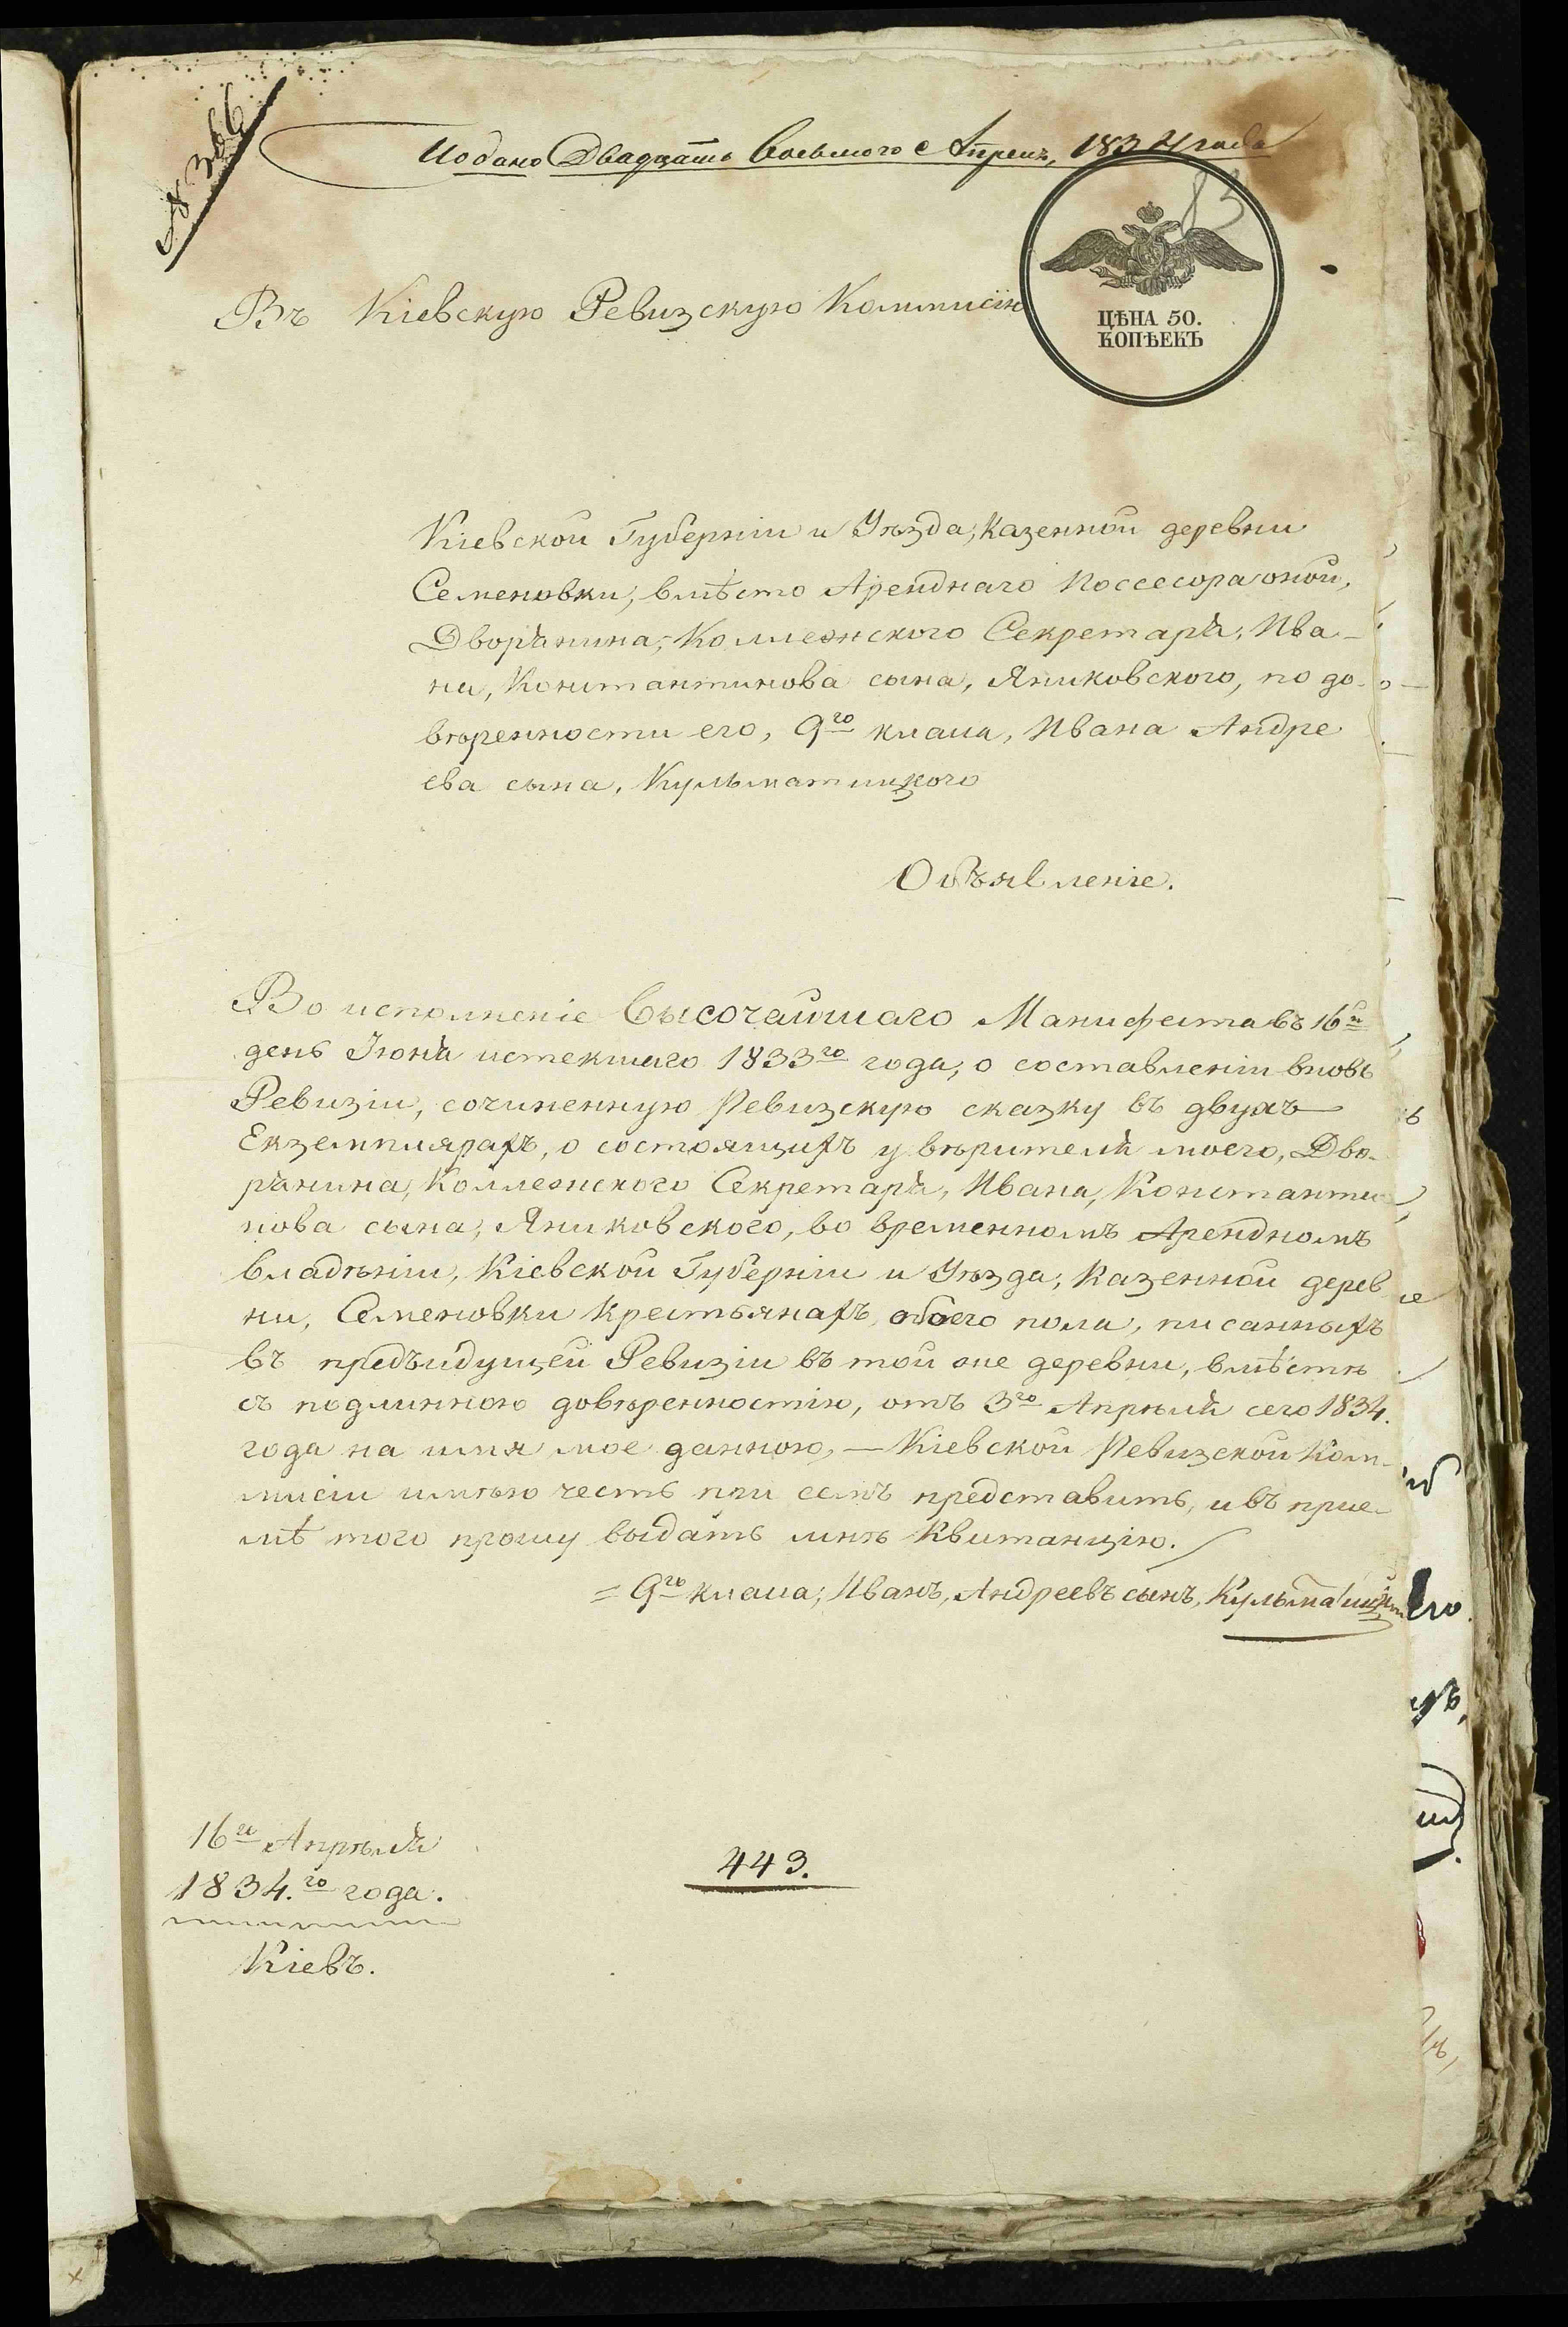 № 366
Подано Двадцать Восьмого Апреля, 1834 года
83
ЦѢНА 50.
КОПѢЕКЪ
Въ Кіевскую Ревизскую Коммисію
Кіевской Губерніи и Уѣзда, Казенной деревни
Семеновки, вмѣсто Аренднаго Поссесора оной,
Дворянина, Коллежского Секретаря, Ива-
на, Константинова сына, Яниковского, по до-
вѣренности его, 9го класса, Ивана Андре
ева сына, Кульматицкого
Объявленіе.
Во исполненіе Высочайшаго Манифеста въ 16й
день Іюня истекшаго 1833го года, о составленіи вновь
Ревизіи, сочиненную Ревизскую сказку въ двухъ
Екземплярахъ, о состоящихъ у вѣрителя моего, Дво-
рянина, Коллежского Секретаря, Ивана, Константи
нова сына, Яниковского, во временномъ Арендномъ
владѣніи, Кіевской Губерніи и Уѣзда, Казенной дерев
ни, Семеновки Крестьянахъ, обоего пола, писанныхъ
въ предъидущей Ревизіи въ той же деревни, вмѣстѣ
съ подлинною довѣренностію, отъ 3го Апрѣля сего 1834.
года на имя мое данною, — Кіевской Ревизской Ком-
мисіи имѣю честь при семъ представить, и въ прие-
мѣ того прошу выдать мнѣ Квитанцію.
= 9го класса, Иванъ, Андреевъ сынъ, Кульматицкій
16го Апрѣля
1834.го года.
Кіевъ.
443.